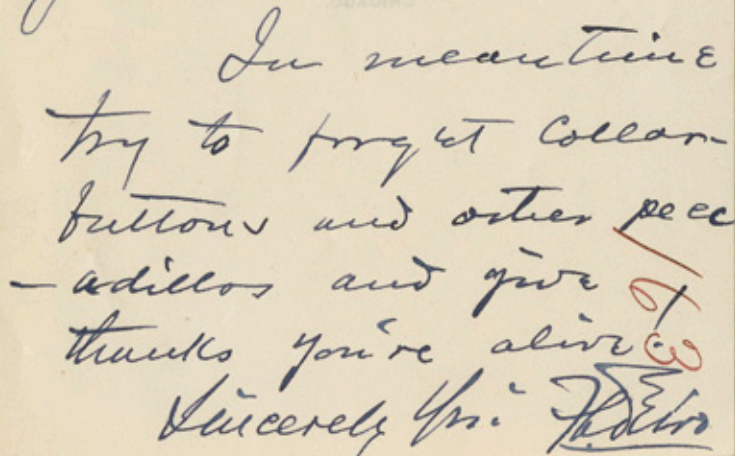 CHICAGO.
In meantime
try to forget Collar-
buttons and other pecc
-adillos and give
thanks you're alive!
Sincerely Yrs:
163